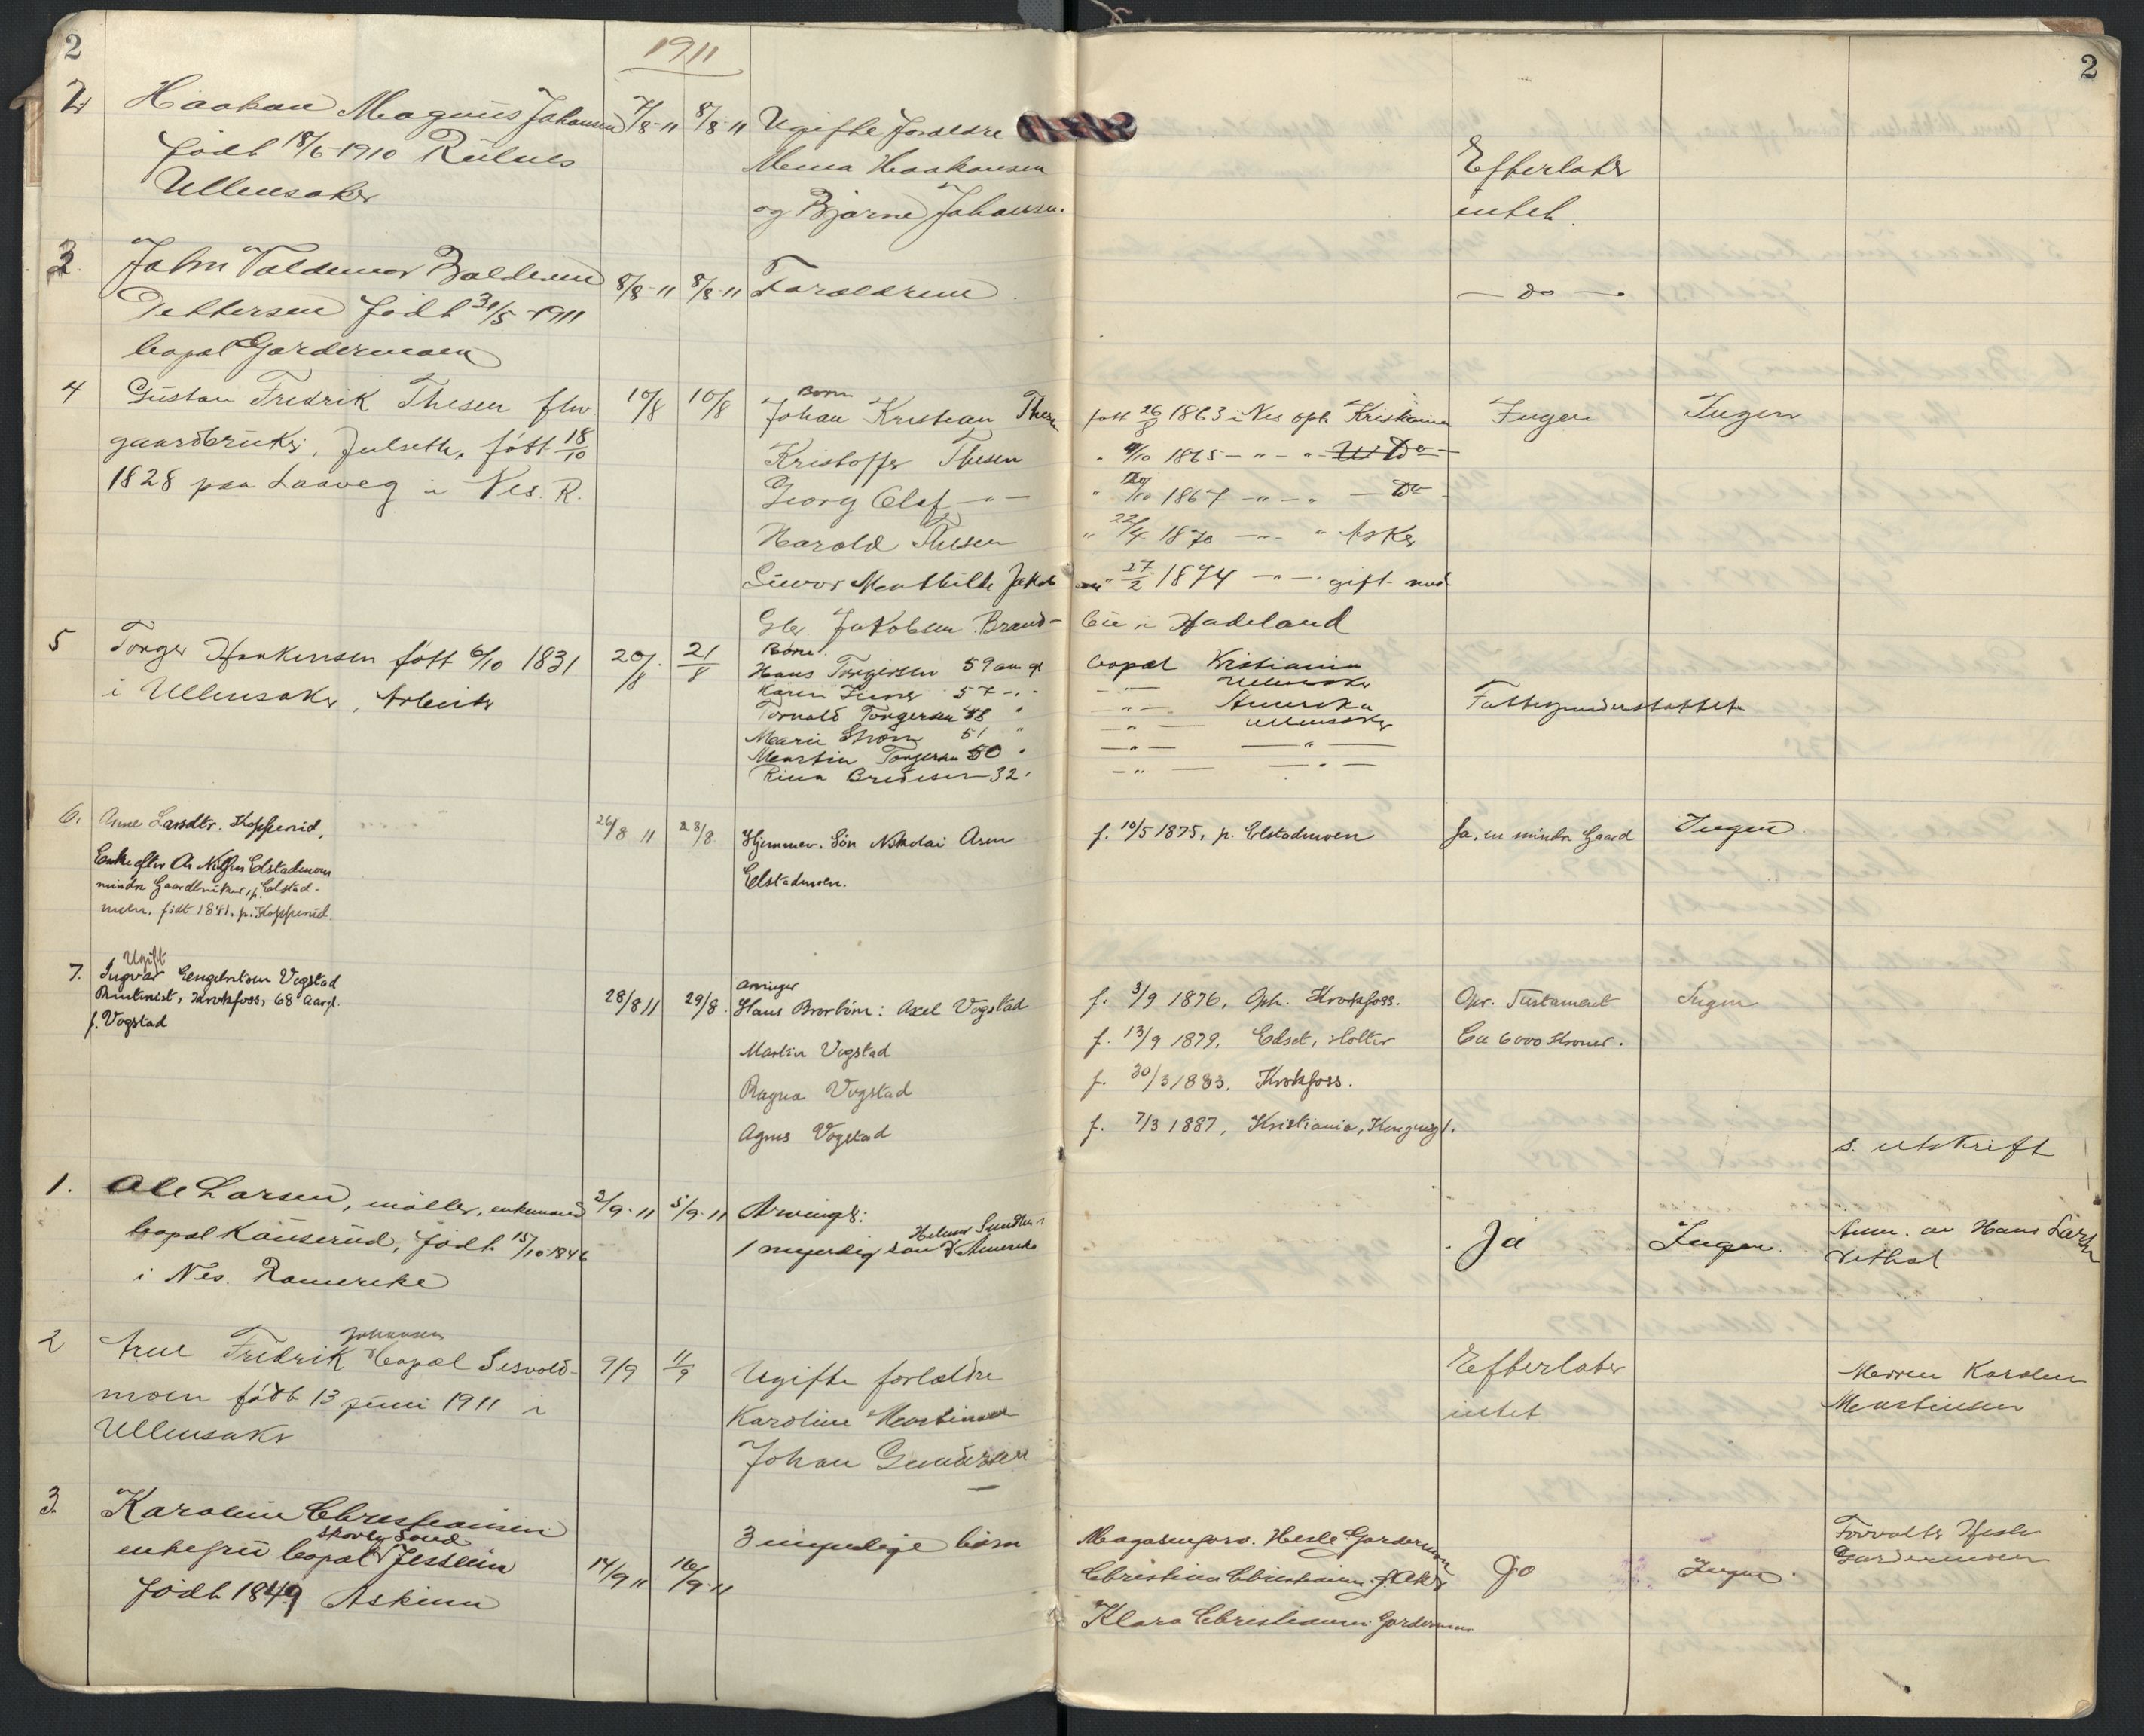 2
1911
2
2 Haakon Magnus Johansen 7/8-11 8/8-11 Ugifte Foreldre
født 18/6-1910
Ullensaker
Haakonsen
og Bjarne Johansen.
Efterlater
intet.
3. John Valdemar
Pettersen født 31/5-1911
bopæl Gardermoen
8/8-11 8/8-11 Foreldrene
— do —
4 Gustav Fredrik Thesen fhv. 10/8 10/8 Børn
gaardbruker, Julseth, født 18/10
1828 paa Laaveg i Nes. R.
Johan Kristian Thesen født 26/8 1863 i Nes oph. Kristiania Ingen Ingen
Kristoffer Thesen " 9/10 1865 — " — " — Do —
Georg Olaf — " — " 1867 — " — " — Do
Harald Thesen " 22/4 1870 — " — " Asker
Mathilde 27/2 1874 — " — gift med
Jakobsen Brand- bu i Hadeland
5 Torger Haakensen født 6/10 1831 20/8 21/8 Børn:
i Ullensaker, Arbeider
Hans Torgersen 59 aar gl bopæl Kristiania
Karen 57 — " — Ullensaker
Torvald Torgersen 48 " — " — Amerika
Marie Strøm 51 " — " — Ullensaker
Martin Torgersen 50 " — " — — " —
Rina Bredesen 32 " — " — — " —
Fattigunderstøttet
6. Anne Larsdtr. Kopperud, 26/8 11 28/8 Hjemmev. Søn Nikolai Asen f. 10/5 1875, p. Elstadmoen Ja, en mindre Gaard Ingen
Elstadmoen.
Enke efter Ole Elstadmoen
mindre Gaardbruker, p. Elstad-
moen, født 1841. p. Kopperud
7. Ugift
Ingvar Engebretsen Vogstad
Rentenist, Krokfoss, 68 Aar gl.
f. Vogstad
28/8 11 29/8. Arvinger
Hans Brorbørn: Axel Vogstad f. 3/9 1876, Oph. Krokfoss. Opr. Testament Ingen
Martin Vogstad f. 13/9 1879, Edset, Holter Ca 6000 Kroner.
Ragna Vogstad f. 30/3 1883, Krokfoss.
Agnes Vogstad f. 7/3 1887, Kristiania, Kongensgt.
s. utskrift
1. Ole Larsen, møller, enkemand 3/9-11 5/9-11 Arvinger:
bopæl Kauserud, født 15/10-1846
i Nes. Romerike
1 myndig søn i Amerika
Ja Ingen. Anm. av Hans Larsen
2 Arne Fredrik Johansen bopæl Sesvold- 9/9 11/9 Ugifte forældre
moen født 13 juni 1911 i
Ullensaker
Karoline Martinsen
Johan Gundersen
Efterlater
intet
Moren Karoline
Martinsen
3. Karoline Christiansen
Skovly Sand
enkefru bopæl Jessheim
født 1849 Askim
14/9 11 16/9-11
3 myndige børn Magasinforv. Hesle Gardermoen
Christian Christiansen
Klara Christiansen Gardermoen
Ja Ingen. Forvalter Hesle
Gardermoen